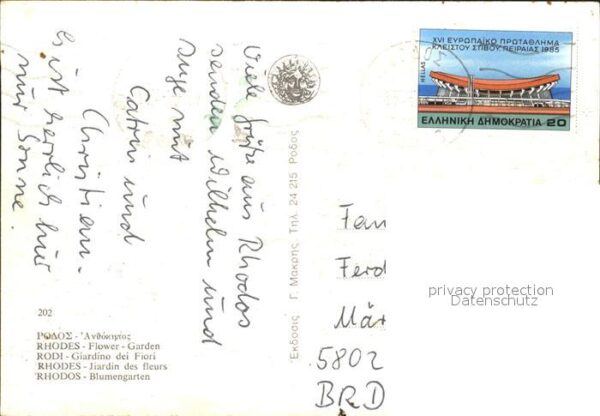 Viele Grüße aus Rhodos
senden Wilhelm und
Inge mit
Catrin und
Christian.
Es ist herrlich hier
nur Sonne.
202
ΡΟΔΟΣ - Ἀνθόκηπος
RHODES - Flower - Garden
RODI - Giardino dei Fiori
RHODES - Jiardin des fleurs
RHODOS - Blumengarten
Ἐκδοσις Γ. Μακρης, Τηλ. 24 215 Ρόδος
XVI ΕΥΡΩΠΑΪΚΟ ΠΡΩΤΑΘΛΗΜΑ
ΚΛΕΙΣΤΟΥ ΣΤΙΒΟΥ, ΠΕΙΡΑΙΑΣ 1985
HELLAS
ΕΛΛΗΝΙΚΗ ΔΗΜΟΚΡΑΤΙΑ 20
Fam
Ferd
Mär
5802
BRD
privacy protection
Datenschutz